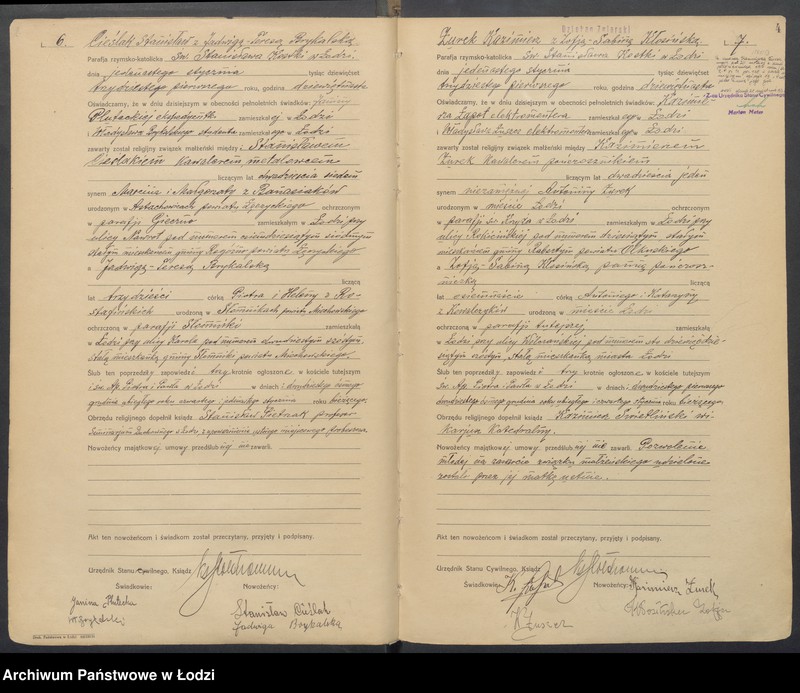 6. Cieślak Stanisław z Jadwigą-Teresą Brykalską
Parafja rzymsko-katolicka Św. Stanisława Kostki w Łodzi.
dnia jedenastego stycznia tysiąc dziewięćset
trzydziestego pierwszego roku, godzina dziewiętnasta
Oświadczamy, że w dniu dzisiejszym w obecności pełnoletnich świadków: Janiny
Pluteckiej ekspedjentki zamieszkałej w Łodzi
Władysława Brykalskiego studenta zamieszkałego w Łodzi
zawarty został religijny związek małżeński między Stanisławem
Cieślakiem kawalerem metalowcem
liczącym lat dwadzieścia siedem
synem Marcina i Małgorzaty z Banasiaków
urodzonym w powiatu Łęczyckiego ochrzczonym
w parafji zamieszkałym w Łodzi przy
ulicy Nawrot pod numerem siedmdziesiątym siódmym
stałym mieszkańcem gminy powiatu Łęczyckiego
a Jadwigą-Teresą Brykalską
liczącą
lat trzydzieści córką Piotra i Heleny z Ro-
stafińskich urodzoną w Słomnikach powiatu Miechowskiego
ochrzczoną w parafji Słomniki zamieszkałą
w Łodzi przy ulicy Karola pod numerem dwudziestym szóstym
stałą mieszkanką gminy Słomniki powiatu Miechowskiego
Ślub ten poprzedziły zapowiedzi trzykrotnie ogłoszone w kościele tutejszym
i Św. Ap. Piotra i Pawła w Łodzi w dniach: dwudziestego ósmego
grudnia ubiegłego roku czwartego i jedenastego stycznia roku bieżącego
Obrzędu religijnego dopełnił ksiądz Stanisław Pietrzak profesor
Seminarjum Duchownego w Łodzi z upoważnienia tutejszego miejscowego proboszcza
Nowożeńcy majątkowej umowy przedślubnej nie zawarli.
Akt ten nowożeńcom i świadkom został przeczytany, przyjęty i podpisany.
Urzędnik Stanu Cywilnego, Ksiądz
Świadkowie: Nowożeńcy:
Janina Plutecka
W. Brykalski
Stanisław Cieślak
Jadwiga Brykalska
4
Żurek Kazimierz z Zofją-Sabiną Kłosińską 7.
Parafja rzymsko-katolicka Św. Stanisława Kostki w Łodzi
dnia jedenastego stycznia tysiąc dziewięćset
trzydziestego pierwszego roku, godzina dziewiętnasta
Oświadczamy, że w dniu dzisiejszym w obecności pełnoletnich świadków: Kazimie-
rza elektromontera zamieszkałego w Łodzi
Władysława elektromontera zamieszkałego w Łodzi
zawarty został religijny związek małżeński między Kazimierzem
Żurek kawalerem pończosznikiem
liczącym lat dwadzieścia jeden
synem niezamężnej Antoniny Żurek
urodzonym w mieście Łodzi ochrzczonym
w parafji Św. Krzyża w Łodzi zamieszkałym w Łodzi przy
ulicy pod numerem dziesiątym stałym
mieszkańcem gminy powiatu Olkuskiego
a Zofją-Sabiną Kłosińską panną pończosz-
niczką liczącą
lat osiemnaście córką Antoniego i Katarzyny
z urodzoną w mieście Łodzi
ochrzczoną w parafji tutejszej zamieszkałą
w Łodzi przy ulicy Wólczańskiej pod numerem sto dziewięćdzie-
siątym szóstym stałą mieszkanką miasta Łodzi
Ślub ten poprzedziły zapowiedzi trzykrotnie ogłoszone w kościele tutejszym
i Św. Ap. Piotra i Pawła w Łodzi w dniach: dwudziestego pierwszego
dwudziestego ósmego grudnia roku ubiegłego i czwartego stycznia roku bieżącego
Obrzędu religijnego dopełnił ksiądz Kazimierz wi-
karjusz Katedralny.
Nowożeńcy majątkowej umowy przedślubnej nie zawarli. Pozwolenie
młodej na zawarcie związku małżeńskiego udzielone
zostało przez jej matkę ustnie.
Z-ca Urzędnika Stanu Cywilnego
Marian Meter
Akt ten nowożeńcom i świadkom został przeczytany, przyjęty i podpisany.
Urzędnik Stanu Cywilnego, Ksiądz
Świadkowie: Nowożeńcy: Kazimierz Żurek
Kłosińska Zofja
Archiwum Państwowe w Łodzi